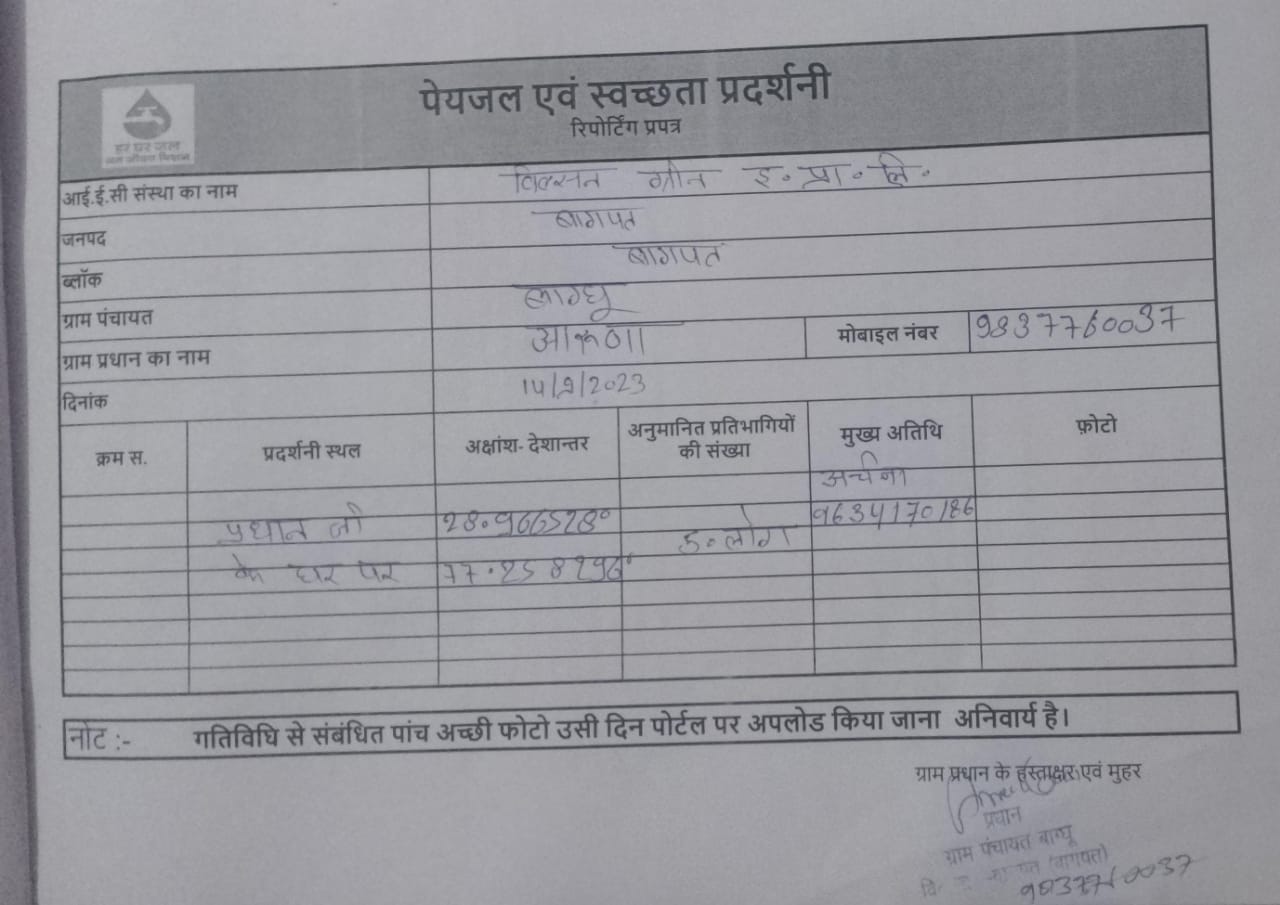 पेयजल एवं स्वच्छता प्रदर्शनी
रिपोर्टिंग प्रपत्र
हर घर जल
जल जीवन मिशन
आई.ई.सी संस्था का नाम विल्सन ग्रीन इ. प्रा. लि.
जनपद बागपत
ब्लॉक बागपत
ग्राम पंचायत बाग्घू
ग्राम प्रधान का नाम मोबाइल नंबर 9837760037
दिनांक 14/9/2023
क्रम स. प्रदर्शनी स्थल अक्षांश- देशान्तर अनुमानित प्रतिभागियों की संख्या मुख्य अतिथि फ़ोटो
अर्चना
प्रधान जी 28.966528° 9634170186
लोग
के घर पर
नोट :- गतिविधि से संबंधित पांच अच्छी फोटो उसी दिन पोर्टल पर अपलोड किया जाना अनिवार्य है।
ग्राम प्रधान के हस्ताक्षर एवं मुहर
प्रधान
ग्राम पंचायत बाग्घू
(बागपत)